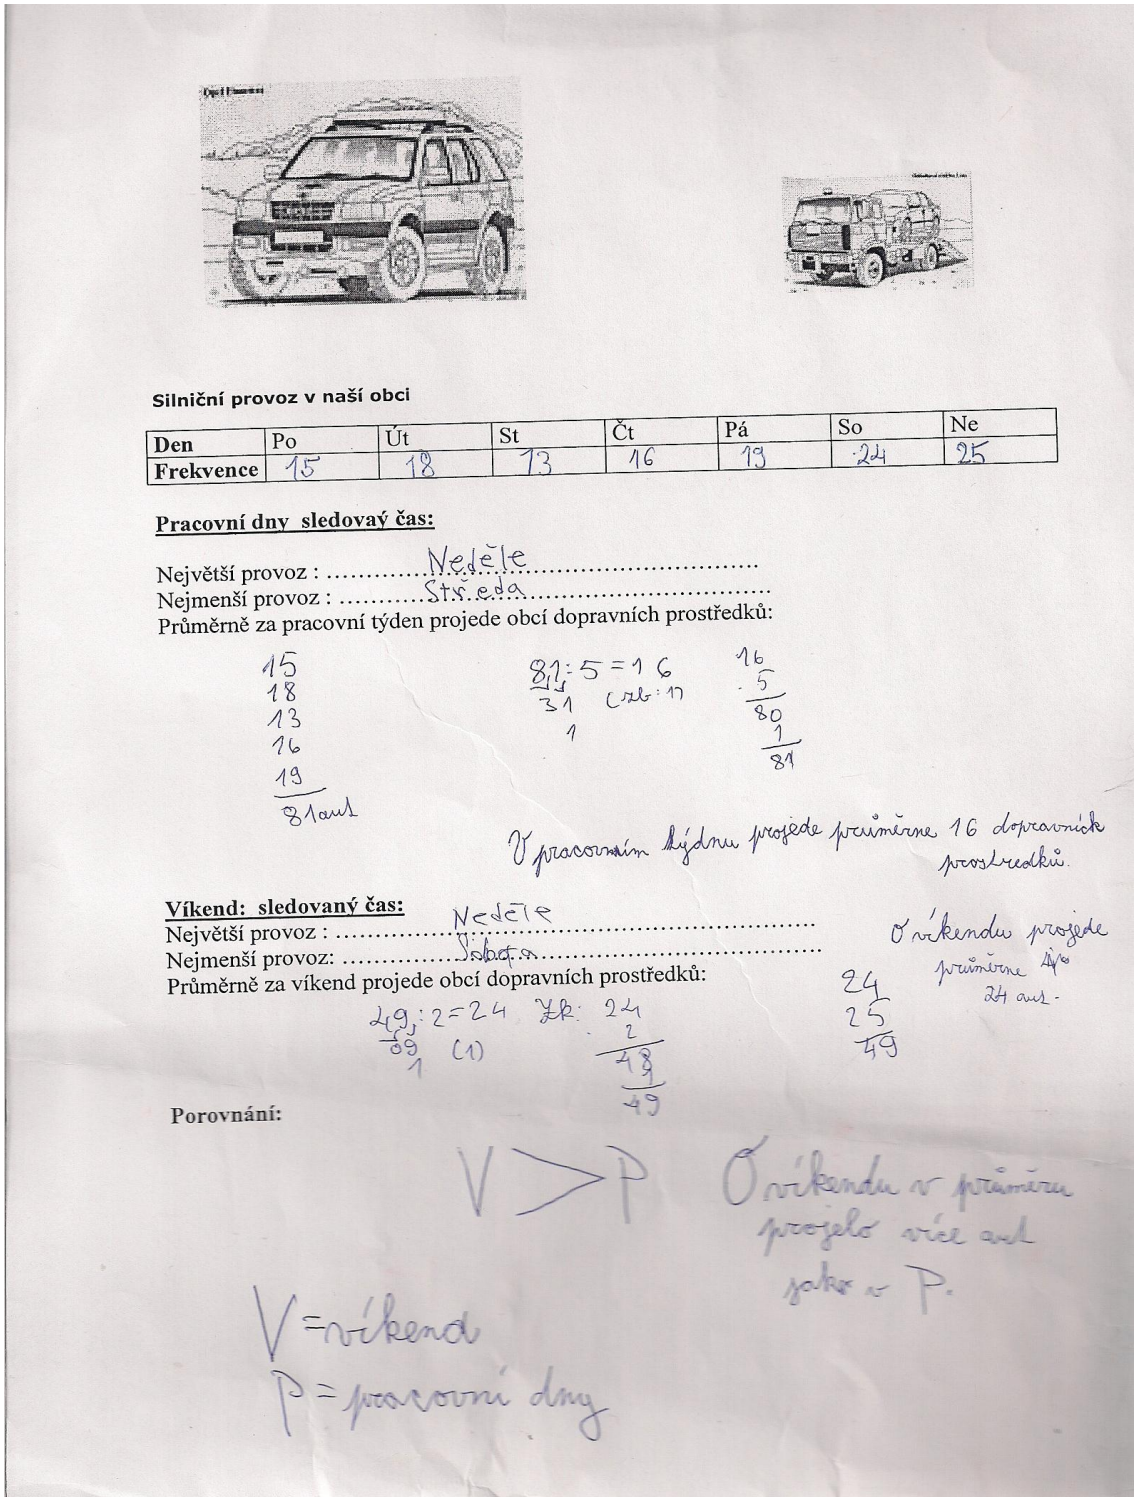 Silniční provoz v naší obci
Den Po Út St Čt Pá So Ne
Frekvence 15 18 13 16 19 24 25
Pracovní dny sledovaý čas:
Největší provoz : Neděle
Nejmenší provoz : Středa
Průměrně za pracovní týden projede obcí dopravních prostředků:
15
18
13
16
19
81 aut
81:5=16
31 (zb:1)
1
16
. 5
80
1
81
V pracovním týdnu projede průměrne 16 dopravních
prostredků.
Víkend: sledovaný čas:
Největší provoz : Neděle
Nejmenší provoz: Sobota
Průměrně za víkend projede obcí dopravních prostředků:
49:2=24 Zk: 24
09 (1) . 2
1 48
1
49
24
25
49
O víkendu projede
průměrne
24 aut.
Porovnání:
V > P
O víkendu v průměru
projelo více aut
jako v P.
V = víkend
P = pracovní dny